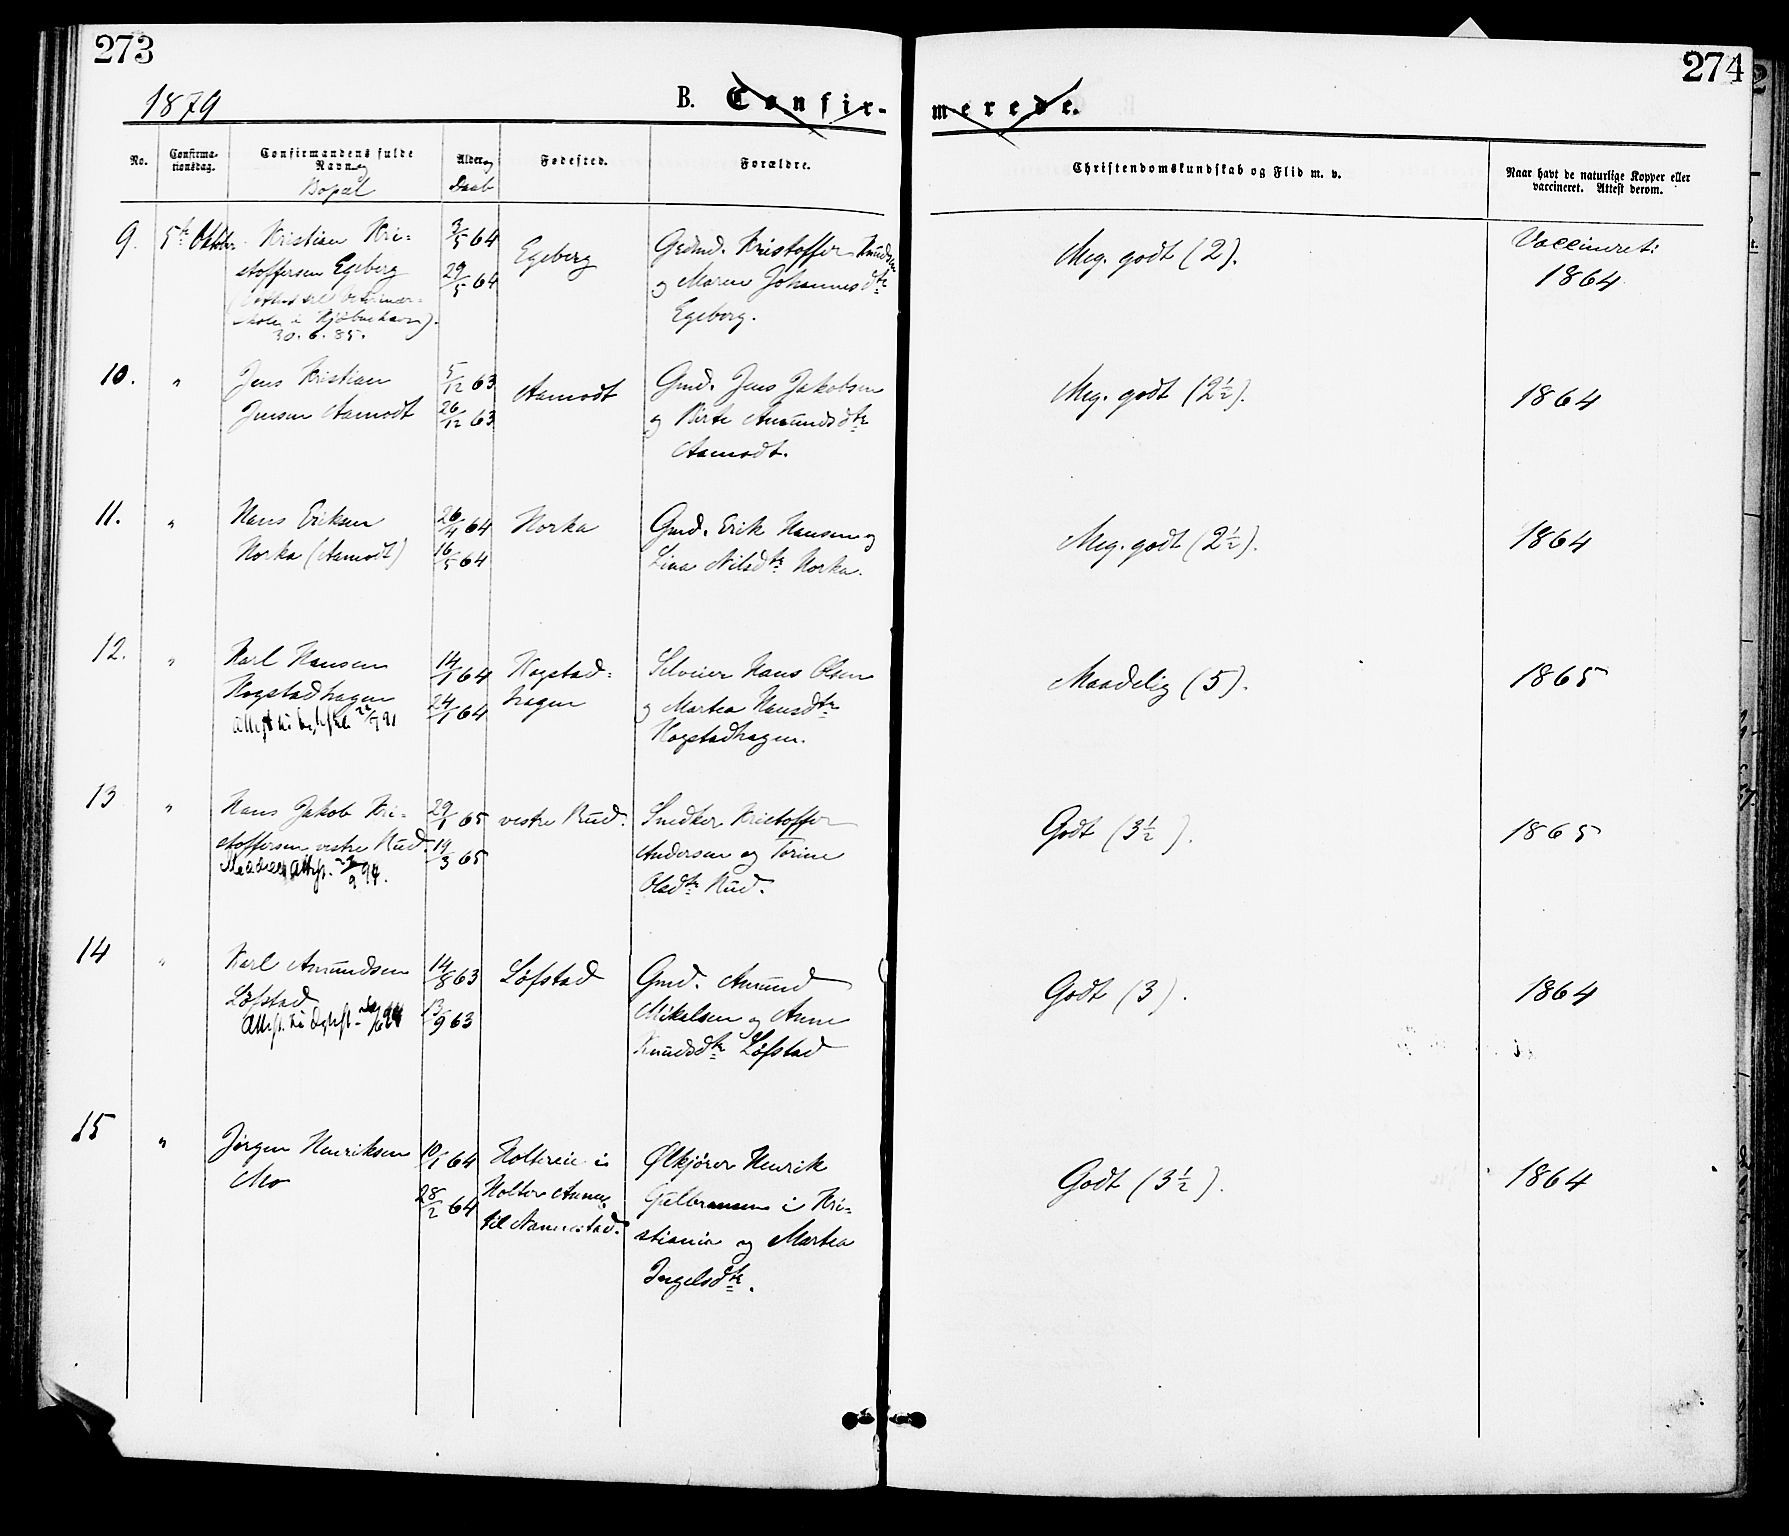 273
274
1879
B. Confir-
merede.
No.
Confirma-
tionsdag.
Confirmandens fulde
Navn og
Bopæl
Alder og
Daab
Fødested.
Forældre.
Christendomskundskab og Flid m. v.
Naar havt de naturlige Kopper eller
vaccineret. Attest derom.
9. 5te Oktober. Kristian Kri-
stoffersen Egeberg
skolen i Kjøbenhavn).
30. 6. 85.
3/5 64
29/5 64
Egeberg
Grdmd. Kristoffer Knudsen
og Maren Johannesdtr
Egeberg.
Meg. godt (2).
Vaccineret:
1864
10. " Jens Kristian
Jensen Aamodt
5/12 63
26/12 63
Aamodt
Gmd. Jens Jakobsen
og Birte Amundsdtr
Aamodt.
Meg. godt (2½).
1864
11. " Hans Eriksen
Horka (Aamodt)
26/4 64
16/5 64
Horka
Gmd. Erik Hansen og
Lina Nilsdtr Horka.
Meg. godt (2½).
1864
12. " Karl Hansen
Kogstadhagen
14/1 64
24/1 64
Kogstad-
hagen
Selveier Hans Olsen
og Martea Hansdtr
Kogstadhagen.
Maadelig (5).
1865
13 " Hans Jakob Kri-
stoffersen vestre Rud.
29/1 65
19/3 65
vestre Rud.
Snedker Kristoffer
Andersen og Torine
Olsdtr Rud.
Godt (3½).
1865
14 " Karl Amundsen
Løfstad
14/8 63
13/9 63
Løfstad
Gmd. Amund
Mikelsen og Anne
Knudsdtr Løfstad
Godt (3).
1864
15 " Jørgen Henriksen
Mo
10/1 64
28/2 64
Holtereie i
Holter Annex
til Nannestad.
Ølkjører Henrik
Gulbransen i Kri-
stiania og Martea
Ingelsdtr.
Godt (3½).
1864